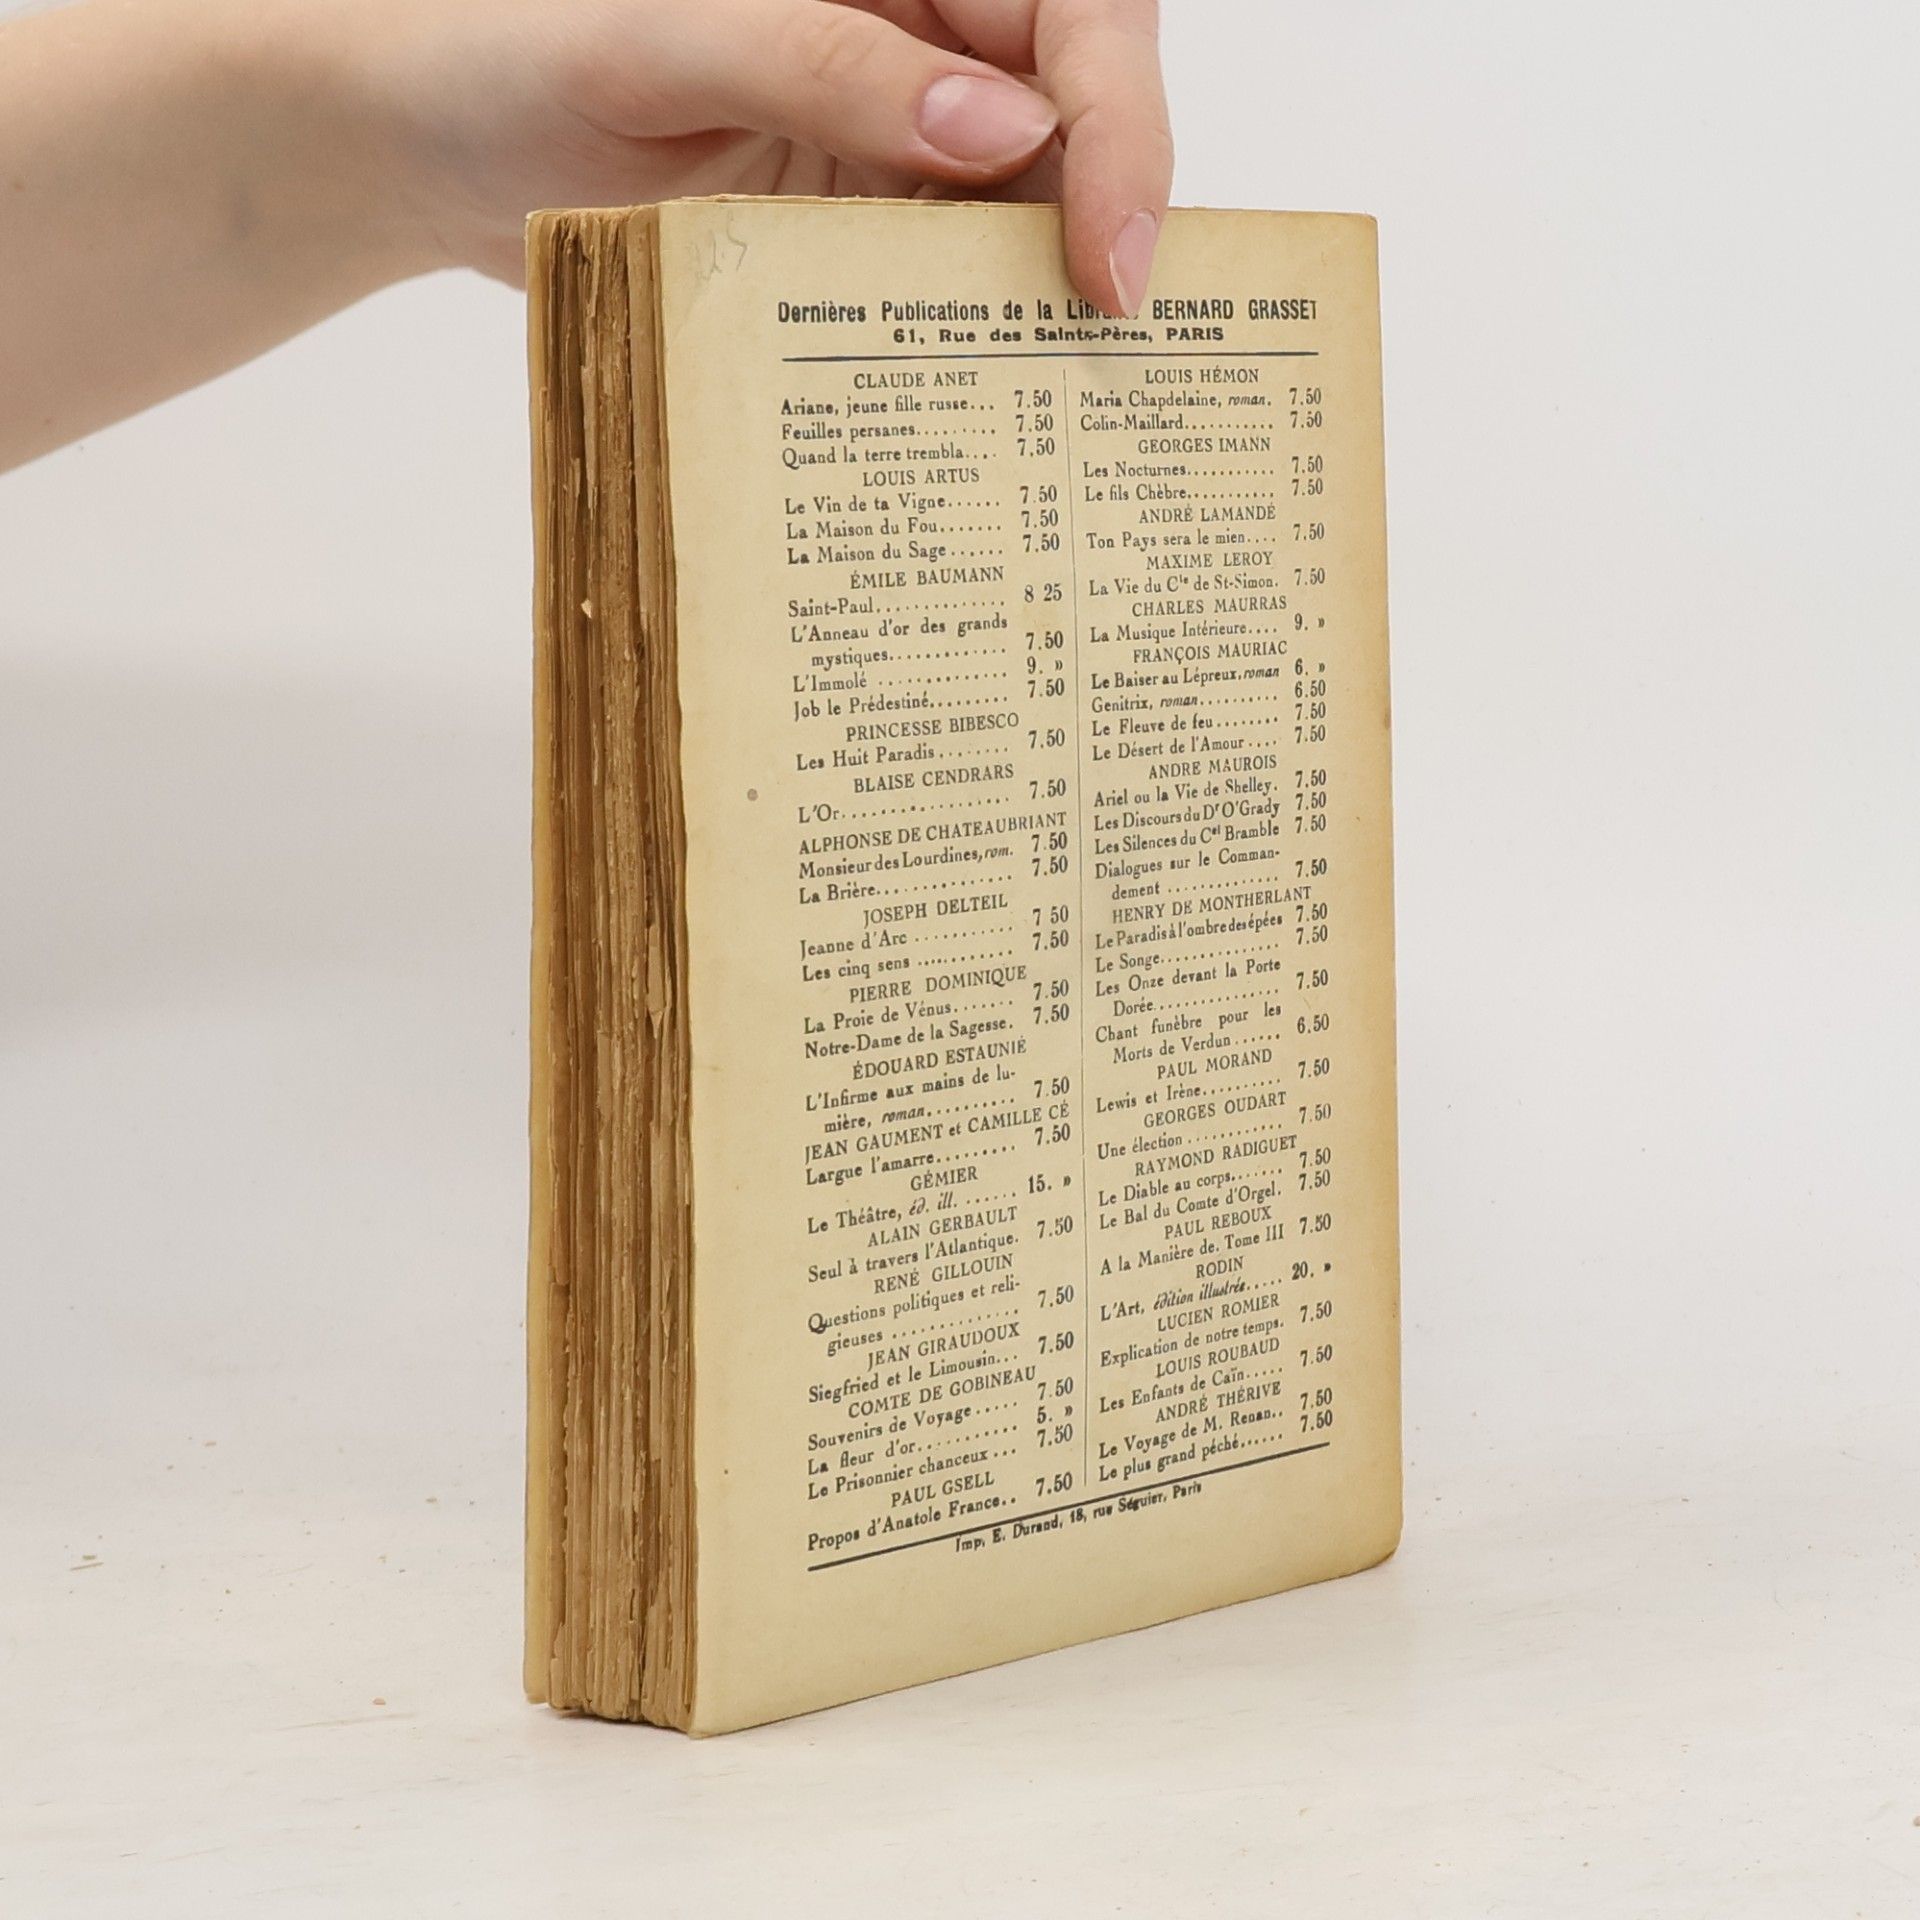 Dernières Publications de la BERNARD GRASSET
61, Rue des Saints-Pères, PARIS
CLAUDE ANET
Ariane, jeune fille russe... 7.50
Feuilles persanes......... 7.50
Quand la terre trembla.... 7.50
LOUIS ARTUS
Le Vin de ta Vigne...... 7.50
La Maison du Fou....... 7.50
La Maison du Sage...... 7.50
ÉMILE BAUMANN
Saint-Paul.............. 8 25
L'Anneau d'or des grands
mystiques............. 7.50
L'Immolé .............. 9. »
Job le Prédestiné......... 7.50
PRINCESSE BIBESCO
Les Huit Paradis........ 7.50
BLAISE CENDRARS
L'Or.................. 7.50
ALPHONSE DE CHATEAUBRIANT
Monsieur des Lourdines, rom. 7.50
La Brière............... 7.50
JOSEPH DELTEIL
Jeanne d'Arc ........... 7 50
Les cinq sens ........... 7.50
PIERRE DOMINIQUE
La Proie de Vénus....... 7.50
Notre-Dame de la Sagesse. 7.50
ÉDOUARD ESTAUNIÉ
L'Infirme aux mains de lu-
mière, roman.......... 7.50
JEAN GAUMENT et CAMILLE CÉ
Largue l'amarre......... 7.50
GÉMIER
Le Théâtre, éd. ill. ...... 15. »
ALAIN GERBAULT
Seul à travers l'Atlantique. 7.50
RENÉ GILLOUIN
Questions politiques et reli-
gieuses ............. 7.50
JEAN GIRAUDOUX
Siegfried et le Limousin... 7.50
COMTE DE GOBINEAU
Souvenirs de Voyage..... 7.50
La fleur d'or........... 5. »
Le Prisonnier chanceux... 7.50
PAUL GSELL
Propos d'Anatole France.. 7.50
LOUIS HÉMON
Maria Chapdelaine, roman. 7.50
Colin-Maillard........... 7.50
GEORGES IMANN
Les Nocturnes........... 7.50
Le fils Chèbre........... 7.50
ANDRÉ LAMANDÉ
Ton Pays sera le mien.... 7.50
MAXIME LEROY
La Vie du Cte de St-Simon. 7.50
CHARLES MAURRAS
La Musique Intérieure.... 9. »
FRANÇOIS MAURIAC
Le Baiser au Lépreux, roman 6. »
Genitrix, roman.......... 6.50
Le Fleuve de feu........ 7.50
Le Désert de l'Amour.... 7.50
ANDRE MAUROIS
Ariel ou la Vie de Shelley. 7.50
Les Discours du Dr O'Grady 7.50
Les Silences du Cel Bramble 7.50
Dialogues sur le Comman-
dement .............. 7.50
HENRY DE MONTHERLANT
Le Paradis à l'ombre des épées 7.50
Le Songe............... 7.50
Les Onze devant la Porte
Dorée................ 7.50
Chant funèbre pour les
Morts de Verdun...... 6.50
PAUL MORAND
Lewis et Irène.......... 7.50
GEORGES OUDART
Une élection ............ 7.50
RAYMOND RADIGUET
Le Diable au corps....... 7.50
Le Bal du Comte d'Orgel. 7.50
PAUL REBOUX
A la Manière de. Tome III 7.50
RODIN
L'Art, édition illustrée..... 20. »
LUCIEN ROMIER
Explication de notre temps. 7.50
LOUIS ROUBAUD
Les Enfants de Caïn.... 7.50
ANDRÉ THÉRIVE
Le Voyage de M. Renan.. 7.50
Le plus grand péché...... 7.50
Imp. E. Durand, 18, rue Séguier, Paris